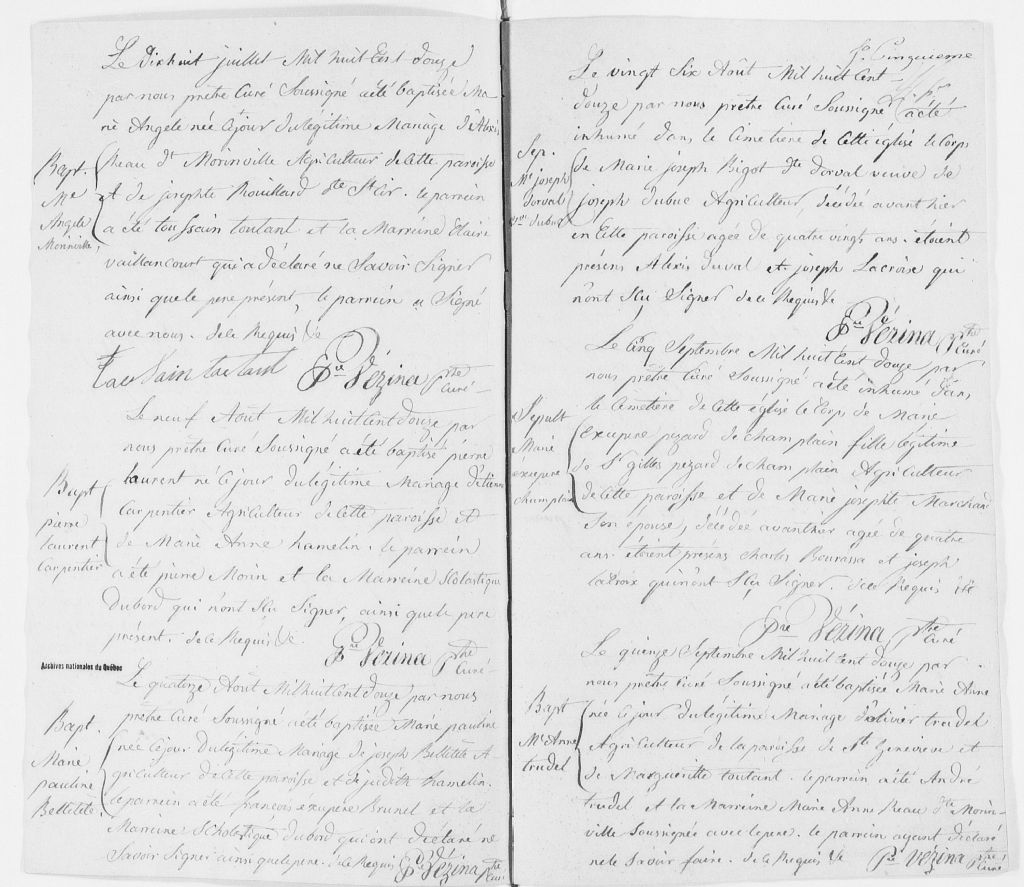 Le dixhuit juillet Mil huit Cent douze
par nous prêtre Curé Soussigné a été baptisée Ma-
rie Angele née Cejour du légitime Mariage d'Alexis
Bapt. Reau dt Morinville Agriculteur de Cette paroisse
Me et de josephte Rouillard dte St Cir. le parrein
Angele a été toussain toutant et la Marreine Claire
Monnville
vaillancourt qui a déclaré ne Savoir Signer
ainsi que le pere présent, le parrein a Signé
avec nous. de ce Requis &c
tousain tautant Pre Vézina Ptre Curé
Le neuf Aout Mil huit Cent douze par
nous prêtre Curé Soussigné a été baptisé pierre
Bapt laurent né Cejour du légitime Mariage d'etienne
pierre Carpentier Agriculteur de Cette paroisse et
laurent de Marie Anne hamelin. le parrein
Carpentier a été pierre Morin et la Marreine Scholastique
Dubord qui n'ont Scu Signer, ainsi que le pere
présent. de ce Requis &c. Pre Vézina Ptre Curé
Archives nationales du Québec
Le quatorze Aout Mil huit Cent douze par nous
prêtre Curé Soussigné a été baptisée Marie pauline
Bapt. née Cejour du légitime Mariage de joseph Belletete A-
Marie griculteur de Cette paroisse et de judith hamelin.
pauline le parrein a été francois éxupere Brunel et la
Belletêté Marreine Scholastique dubord qui ont déclaré ne
Savoir Signer ainsi que le pere. de ce Requis Pre Vézina Ptre Curé
fo. Cinquieme
Le vingt Six Août Mil huit Cent
douze par nous prêtre Curé Soussigné a été
inhumé dans le Cimetiere de Cette église le Corps
Sep. de Marie joseph Bigot dte dorval veuve de
Me joseph joseph dubuc Agriculteur, décédée avant hier
dorval en Cette paroisse agée de quatre vingts ans. étoient
ve dubuc présens Alexis duval et joseph Lacroix qui
n'ont Scu Signer de ce Requis &c
Pre Vézina Ptre Curé
Le Cinq Septembre Mil huit Cent douze par
nous prêtre Curé Soussigné a été inhumé dans
Sepult le Cimetiere de Cette église le Corps de Marie
Marie Exupere pezard de champlain fille légitime
exupere de Sr gilles pezard de champlain Agriculteur
champlain de Cette paroisse et de Marie josephte Marchand
Son épouse, décédée avanthier agée de quatre
ans. étoient présens charles Bourassa et joseph
lacroix qui n'ont Scu Signer. de ce Requis &c
Pre Vézina Ptre Curé
Le quinze Septembre Mil huit Cent douze par
nous prêtre Curé Soussigné a été baptisée Marie Anne
Bapt née Cejour du légitime Mariage d'olivier trudel
Me Anne Agriculteur de la paroisse de Ste Genevieve et
trudel de Margueritte toutant. le parrein a été André
trudel et la Marreine Marie Anne Reau dte Morin-
ville Soussignée avec le pere. le parrein ayant déclaré
ne le Savoir faire. de ce Requis &c Pre Vézina Ptre Curé